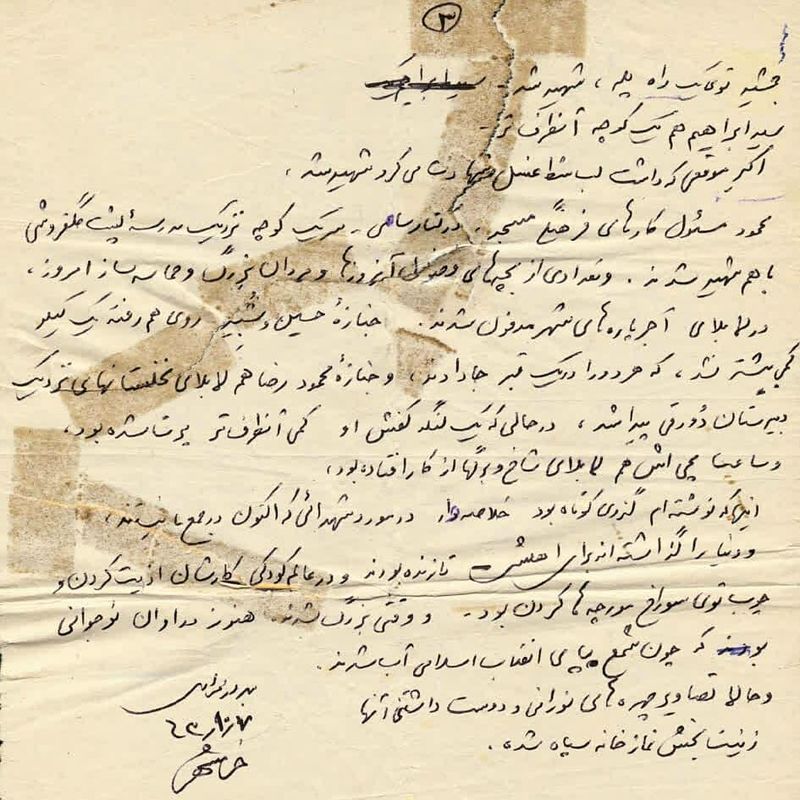 ۳
جمشید توی یک راه پله، شهید شد -
سید ابراهیم هم یک کوچه آنطرف تر -
اکبر موقعی که داشت لب شط غسل می کرد شهید شد،
محمود مسئول کارهای فرهنگی مسجد - سر یک کوچه نزدیک مدرسهٔ پشت گلفروشی
با هم شهید شدند. و تعدادی از بچه‌های آنروزها و مردان بزرگ و حماسه ساز امروز،
در لابلای آجرپاره‌های شهر مدفون شدند. جنازهٔ حسین و روی هم رفته یک کیلو
کمی بیشتر نشد، که هر دو را در یک قبر جا دادند، و جنازهٔ محمود رضا هم لابلای نخلستانهای نزدیک
دبیرستان دورقی پیدا شد، در حالی که یک لنگه کفش او کمی آنطرف تر پرت شده بود،
و ساعت مچی اش هم لابلای شاخ و برگها از کار افتاده بود،
اینکه نوشته ام گذری کوتاه بود خلاصه وار در مورد شهدائی که اکنون در جمع ما نیستند،
و دنیا را گذاشته اند برای اهلش تا زنده بودند و در عالم کودکی کارشان اذیت کردن و
چوب توی سوراخ مورچه ها کردن بود - و وقتی بزرگ شدند هنوز در اوان نوجوانی
بودند که چون شمع بپای انقلاب اسلامی آب شدند.
و حالا تصاویر چهره‌های نورانی و دوست داشتنی آنها
زینت بخش نمازخانه سپاه شده.
بهروز مرادی
خرمشهر